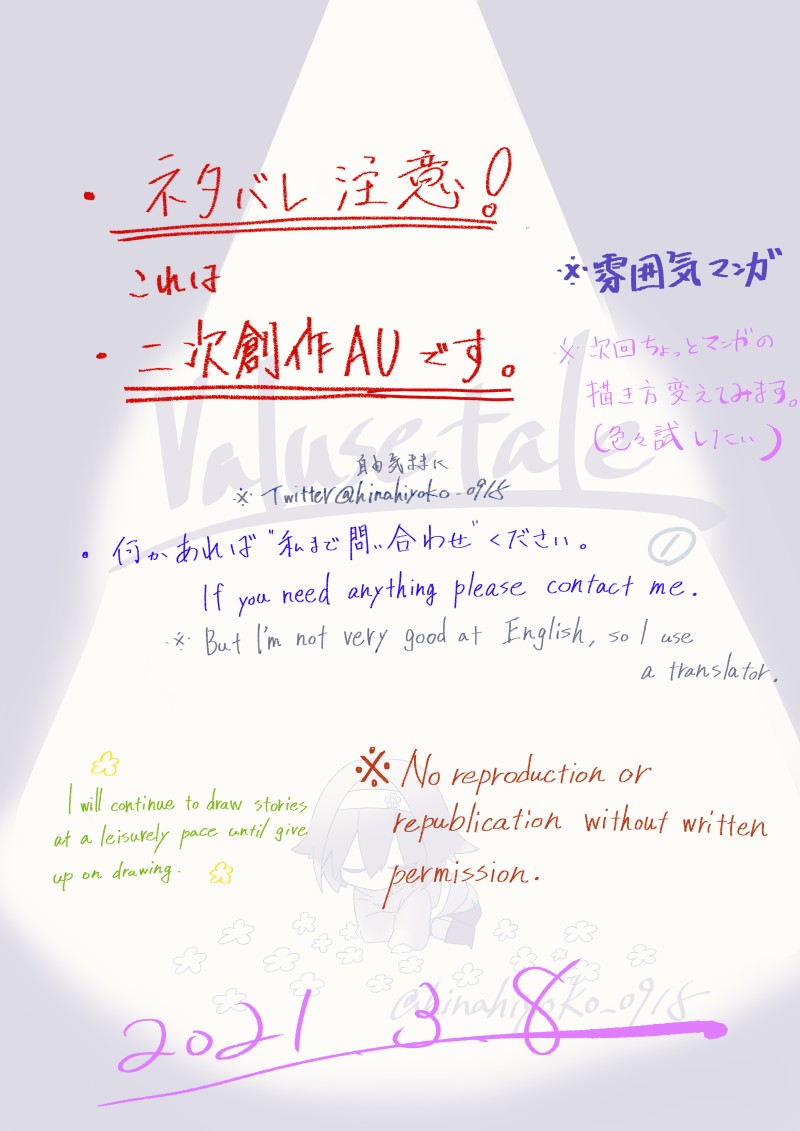 ・ネタバレ注意!
これは
・二次創作AUです。
※雰囲気マンガ
※次回ちょっとマンガの
描き方変えてみます。
(色々試したい)
Valusetale
自由気ままに
※Twitter@hinahiyoko_0915
・何かあれば"私まで問い合わせ"ください。
①
If you need anything please contact me.
※But I'm not very good at English, so I use
a translator.
I will continue to draw stories
at a leisurely pace until give
up on drawing.
※No reproduction or
republication without written
permission.
@hinahiyoko_0915
2021 3.8